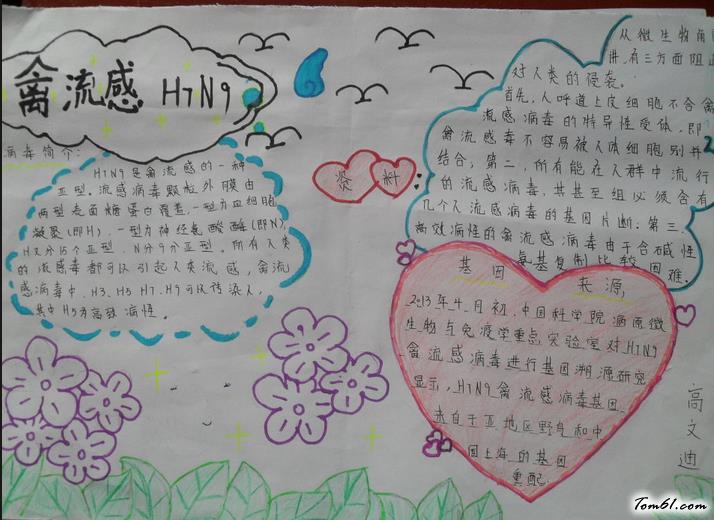 禽流感 H7N9
病毒简介:
H7N9是禽流感的一种
亚型。流感病毒颗粒外膜由
两型表面糖蛋白覆盖,一型为血细胞
凝聚(即H),一型为神经氨酸酶(即N),
H又分15个亚型,N分9个亚型。所有人类
的流感毒都可以引起人类流感,禽流
感病毒中,H3、H5、H7、H9可以传染人,
其中H5为高致病性。
资料
从微生物角
讲,有三方面阻
对人类的侵袭。
首先,人呼道上皮细胞不含禽
流感病毒的特异性受体,即
禽流感毒不容易被人体细胞别并
结合;第二,所有能在人群中流行
的流感病毒,其基至组必须含有
几个人流感病毒的基因片断;第三,
高效病性的禽流感病毒由于含碱性
氨基复制比较困难。
基因来源
2013年4月初,中国科学院病原微
生物与免疫学重点实验室对H7N9
禽流感病毒进行基因溯源研究
显示,H7N9禽流感病毒基因
来自于亚地区野鸟和中
国上海的基因
重配
高文迪
Tom61.com